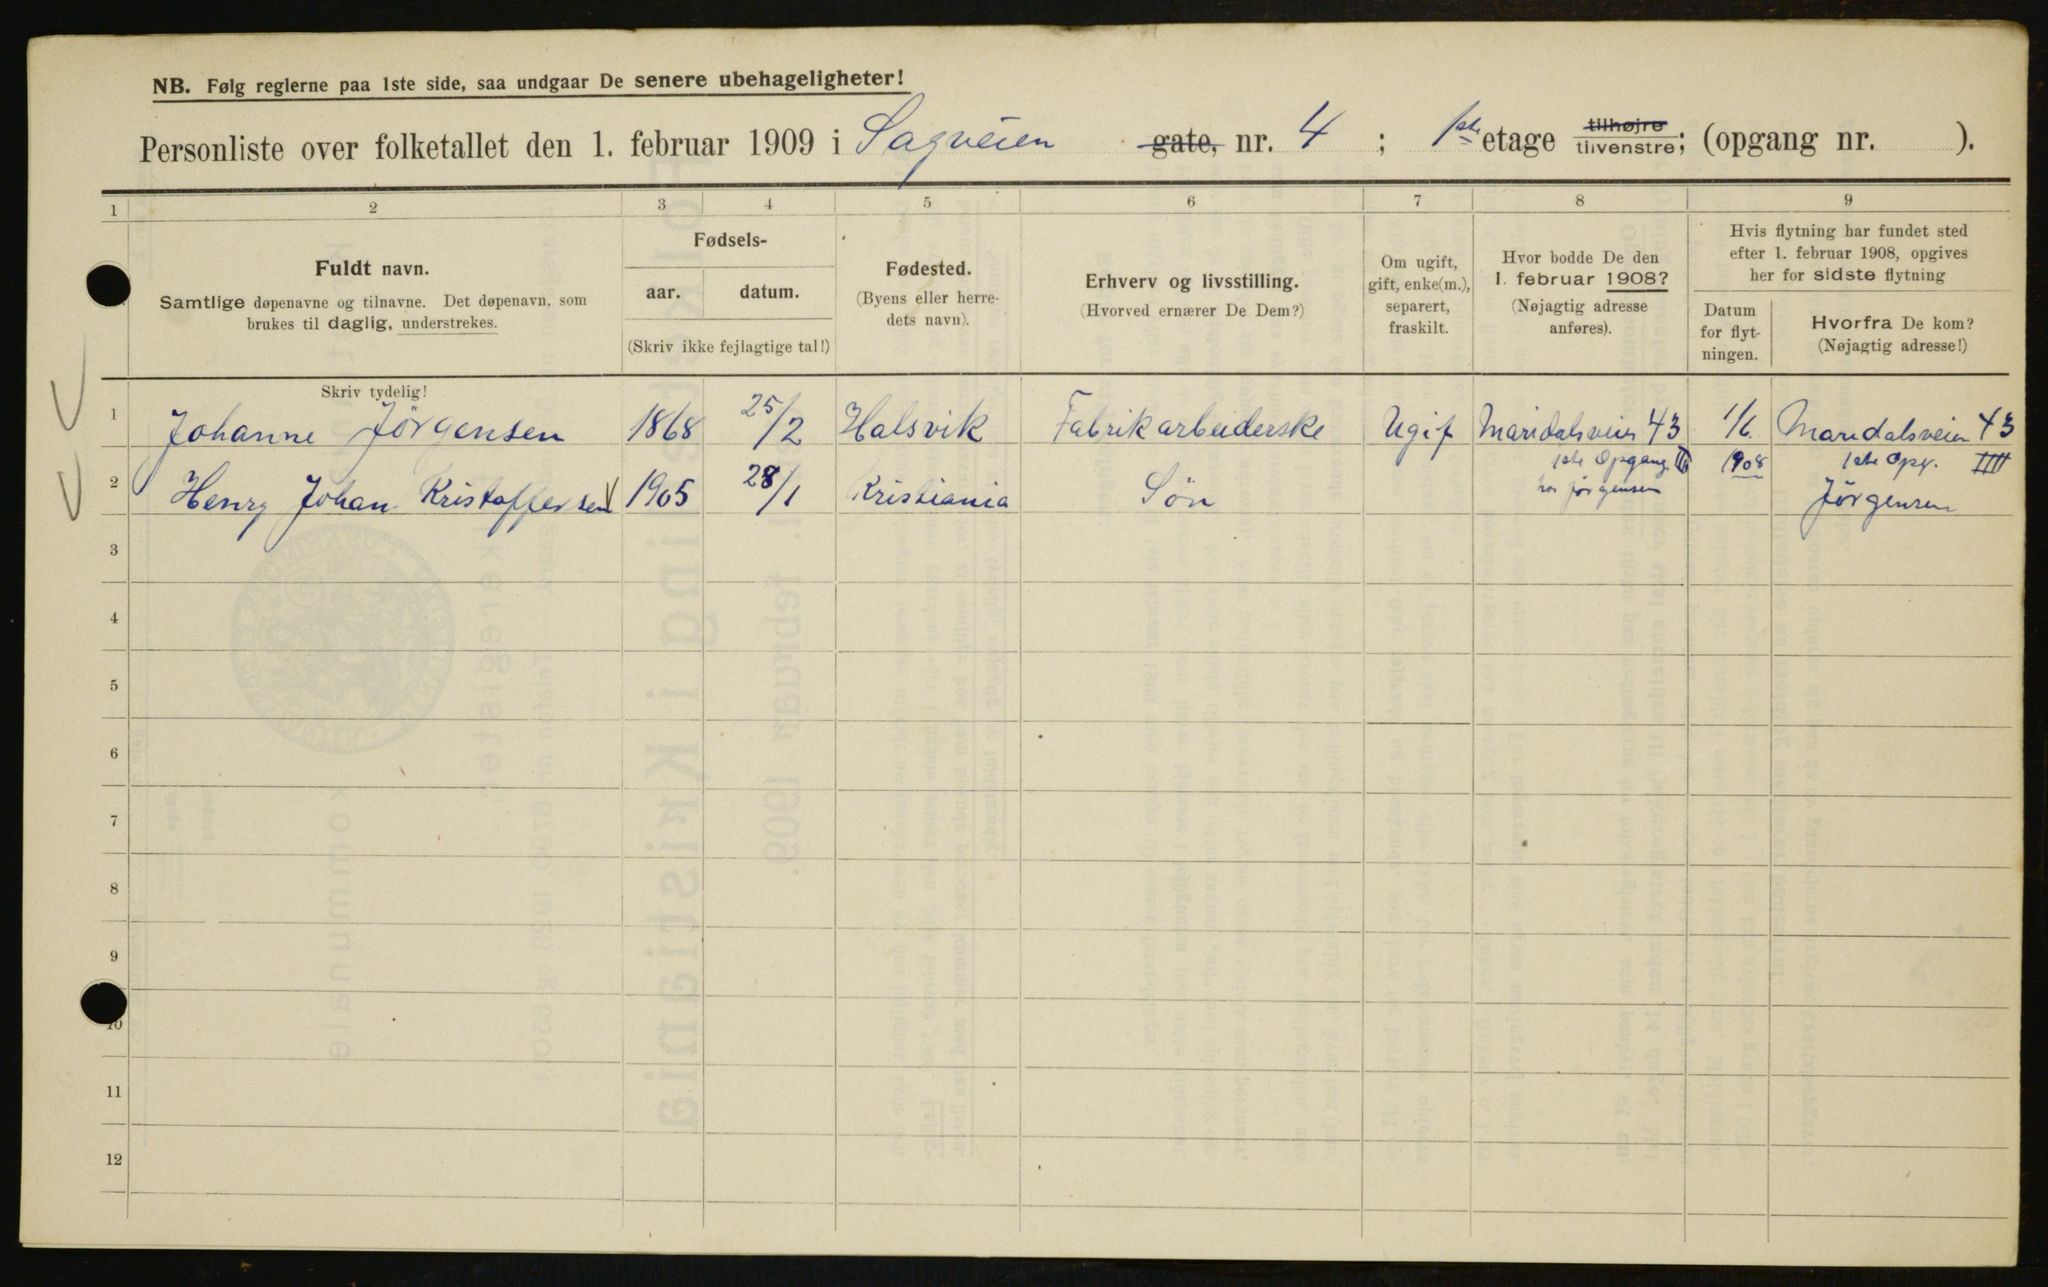 NB. Følg reglerne paa 1ste side, saa undgaar De senere ubehageligheter!
Personliste over folketallet den 1. februar 1909 i Sagveien gate, nr. 4 ; 1ste etage tilhøjre tilvenstre; (opgang nr. ).
1 2 3 4 5 6 7 8 9
Fuldt navn.
Samtlige døpenavne og tilnavne. Det døpenavn, som
brukes til daglig, understrekes.
Fødsels-
aar. datum.
(Skriv ikke fejlagtige tal!)
Fødested.
(Byens eller herre-
dets navn).
Erhverv og livsstilling.
(Hvorved ernærer De Dem?)
Om ugift,
gift, enke(m.),
separert,
fraskilt.
Hvor bodde De den
1. februar 1908?
(Nøjagtig adresse
anføres).
Hvis flytning har fundet sted
efter 1. februar 1908, opgives
her for sidste flytning
Datum
for flyt-
ningen.
Hvorfra De kom?
(Nøjagtig adresse!)
Skriv tydelig!
1 Johanne Jörgensen 1868 25/2 Halsvik Fabrikarbeiderske Ugif Maridalsveien 43 1/6. Maridalsveien 43
1ste Opgang III 1908 1ste Opg. IIII
2 Henry Johan Kristoffersen 1905 28/1 Kristiania Sön hos Jörgensen Jörgensen
3
4
5
6
7
8
9
10
11
12